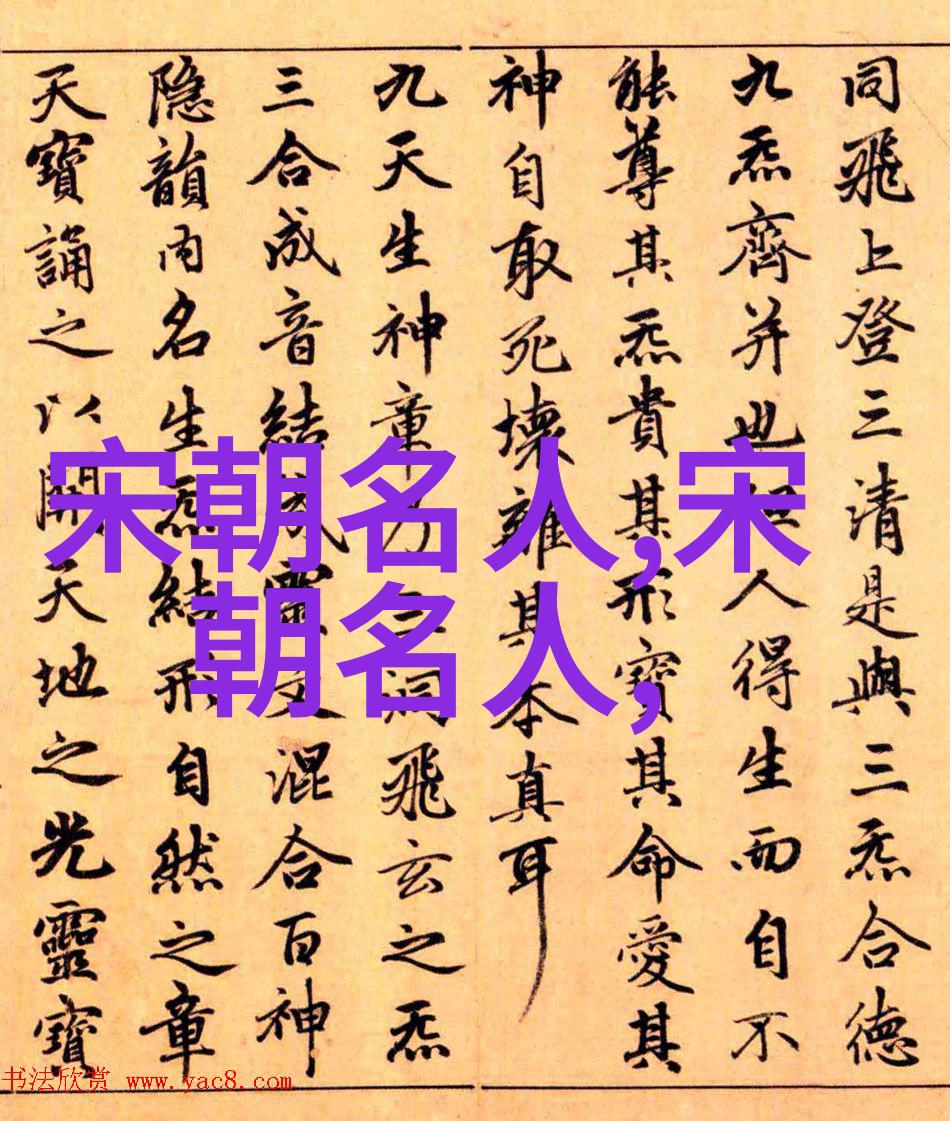 同飛上登三清是與三炁合德
九炁齊并也但人得生而自不
能尊其炁貴其形寶其命愛其
神自取死壞離其本真耳
九天生神章乃三洞飛玄之炁
三合成音結成靈文混合百神
隐韻内名生炁結形自然之章
天寶誦之以開天地之光靈寶
宋朝名人,宋
朝名人,
书法欣赏 www.yac8.com